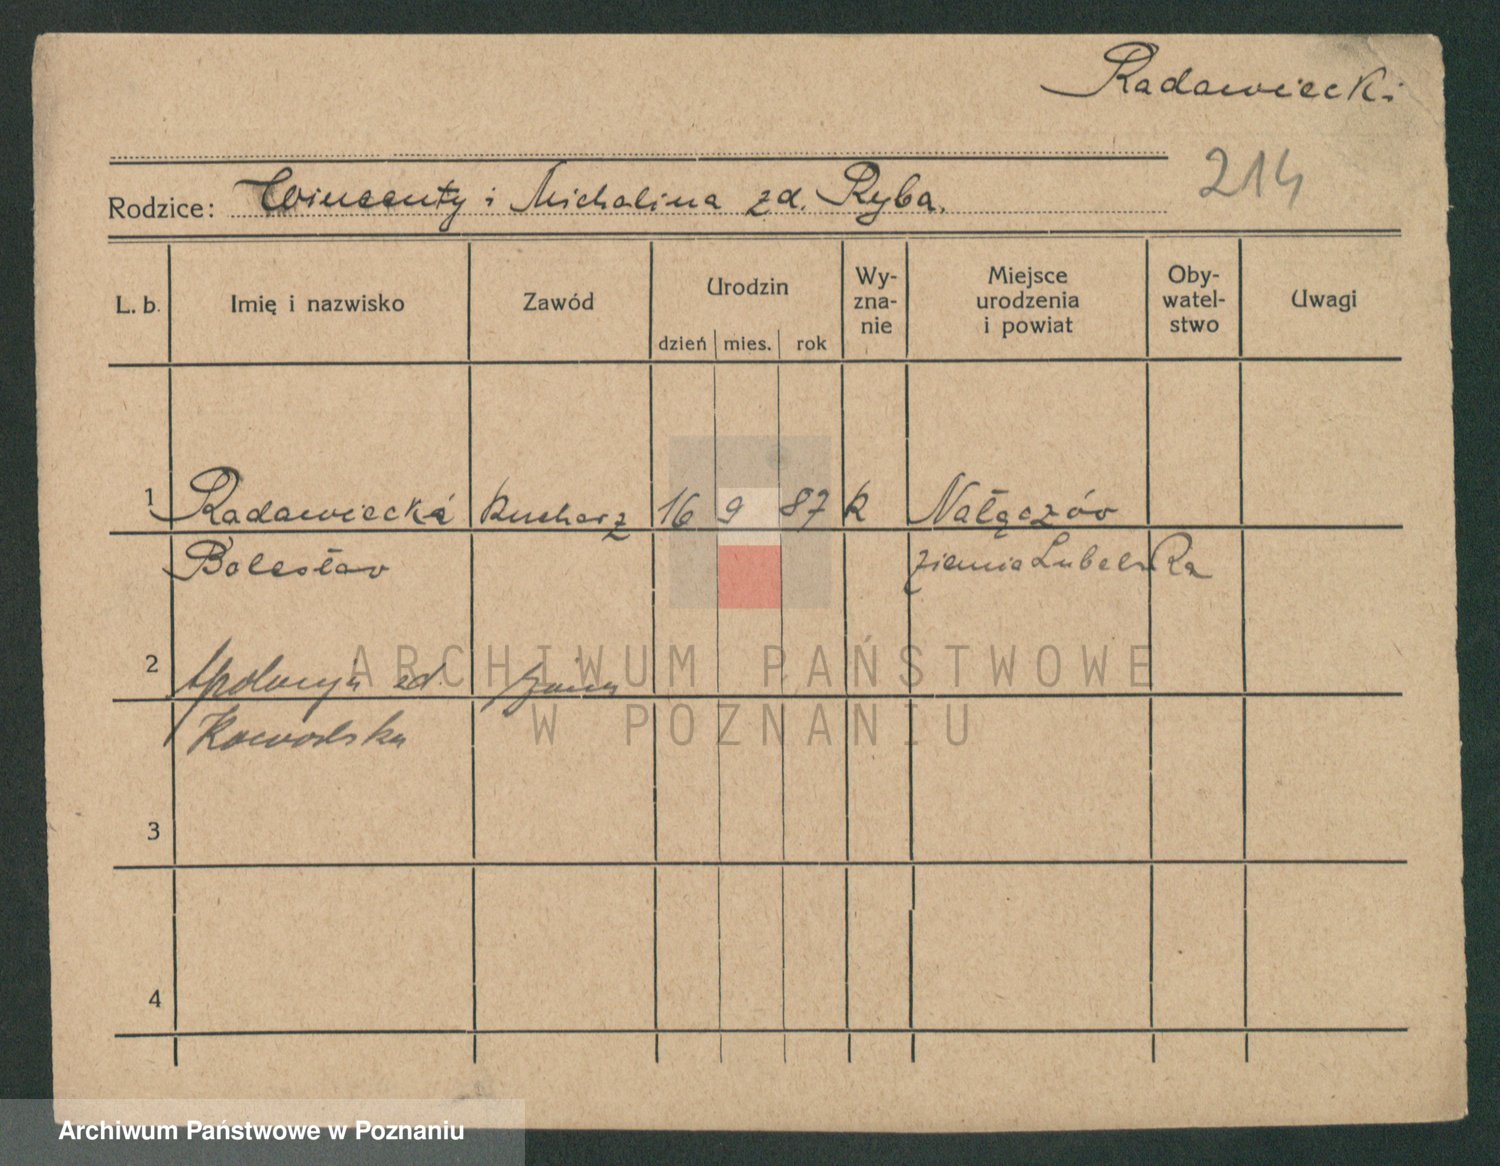 Radawiecki
214
Rodzice: Wincenty i Michalina zd. Ryba.
L. b. Imię i nazwisko Zawód Urodzin Wy-zna-nie Miejsce urodzenia i powiat Oby-watel-stwo Uwagi
dzień mies. rok
1 Radawiecki Kucharz 16 9 87 k Nałęczów
Bolesław ziemia Lubelska
2 Apolonja zd. żona
3
4
ARCHIWUM PAŃSTWOWE
W POZNANIU
Archiwum Państwowe w Poznaniu